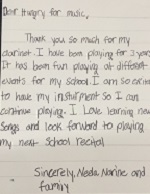 Dear Hungry for music,
Thank you so much for my
clarinet. I have been playing for 2 years
It has been fun playing at different
events for my school. I am so excited
to have my insturment so I can
continue playing. I Love learning new
Songs and look forward to playing
my next School recital
Sincerely, Neda, Narine and
family